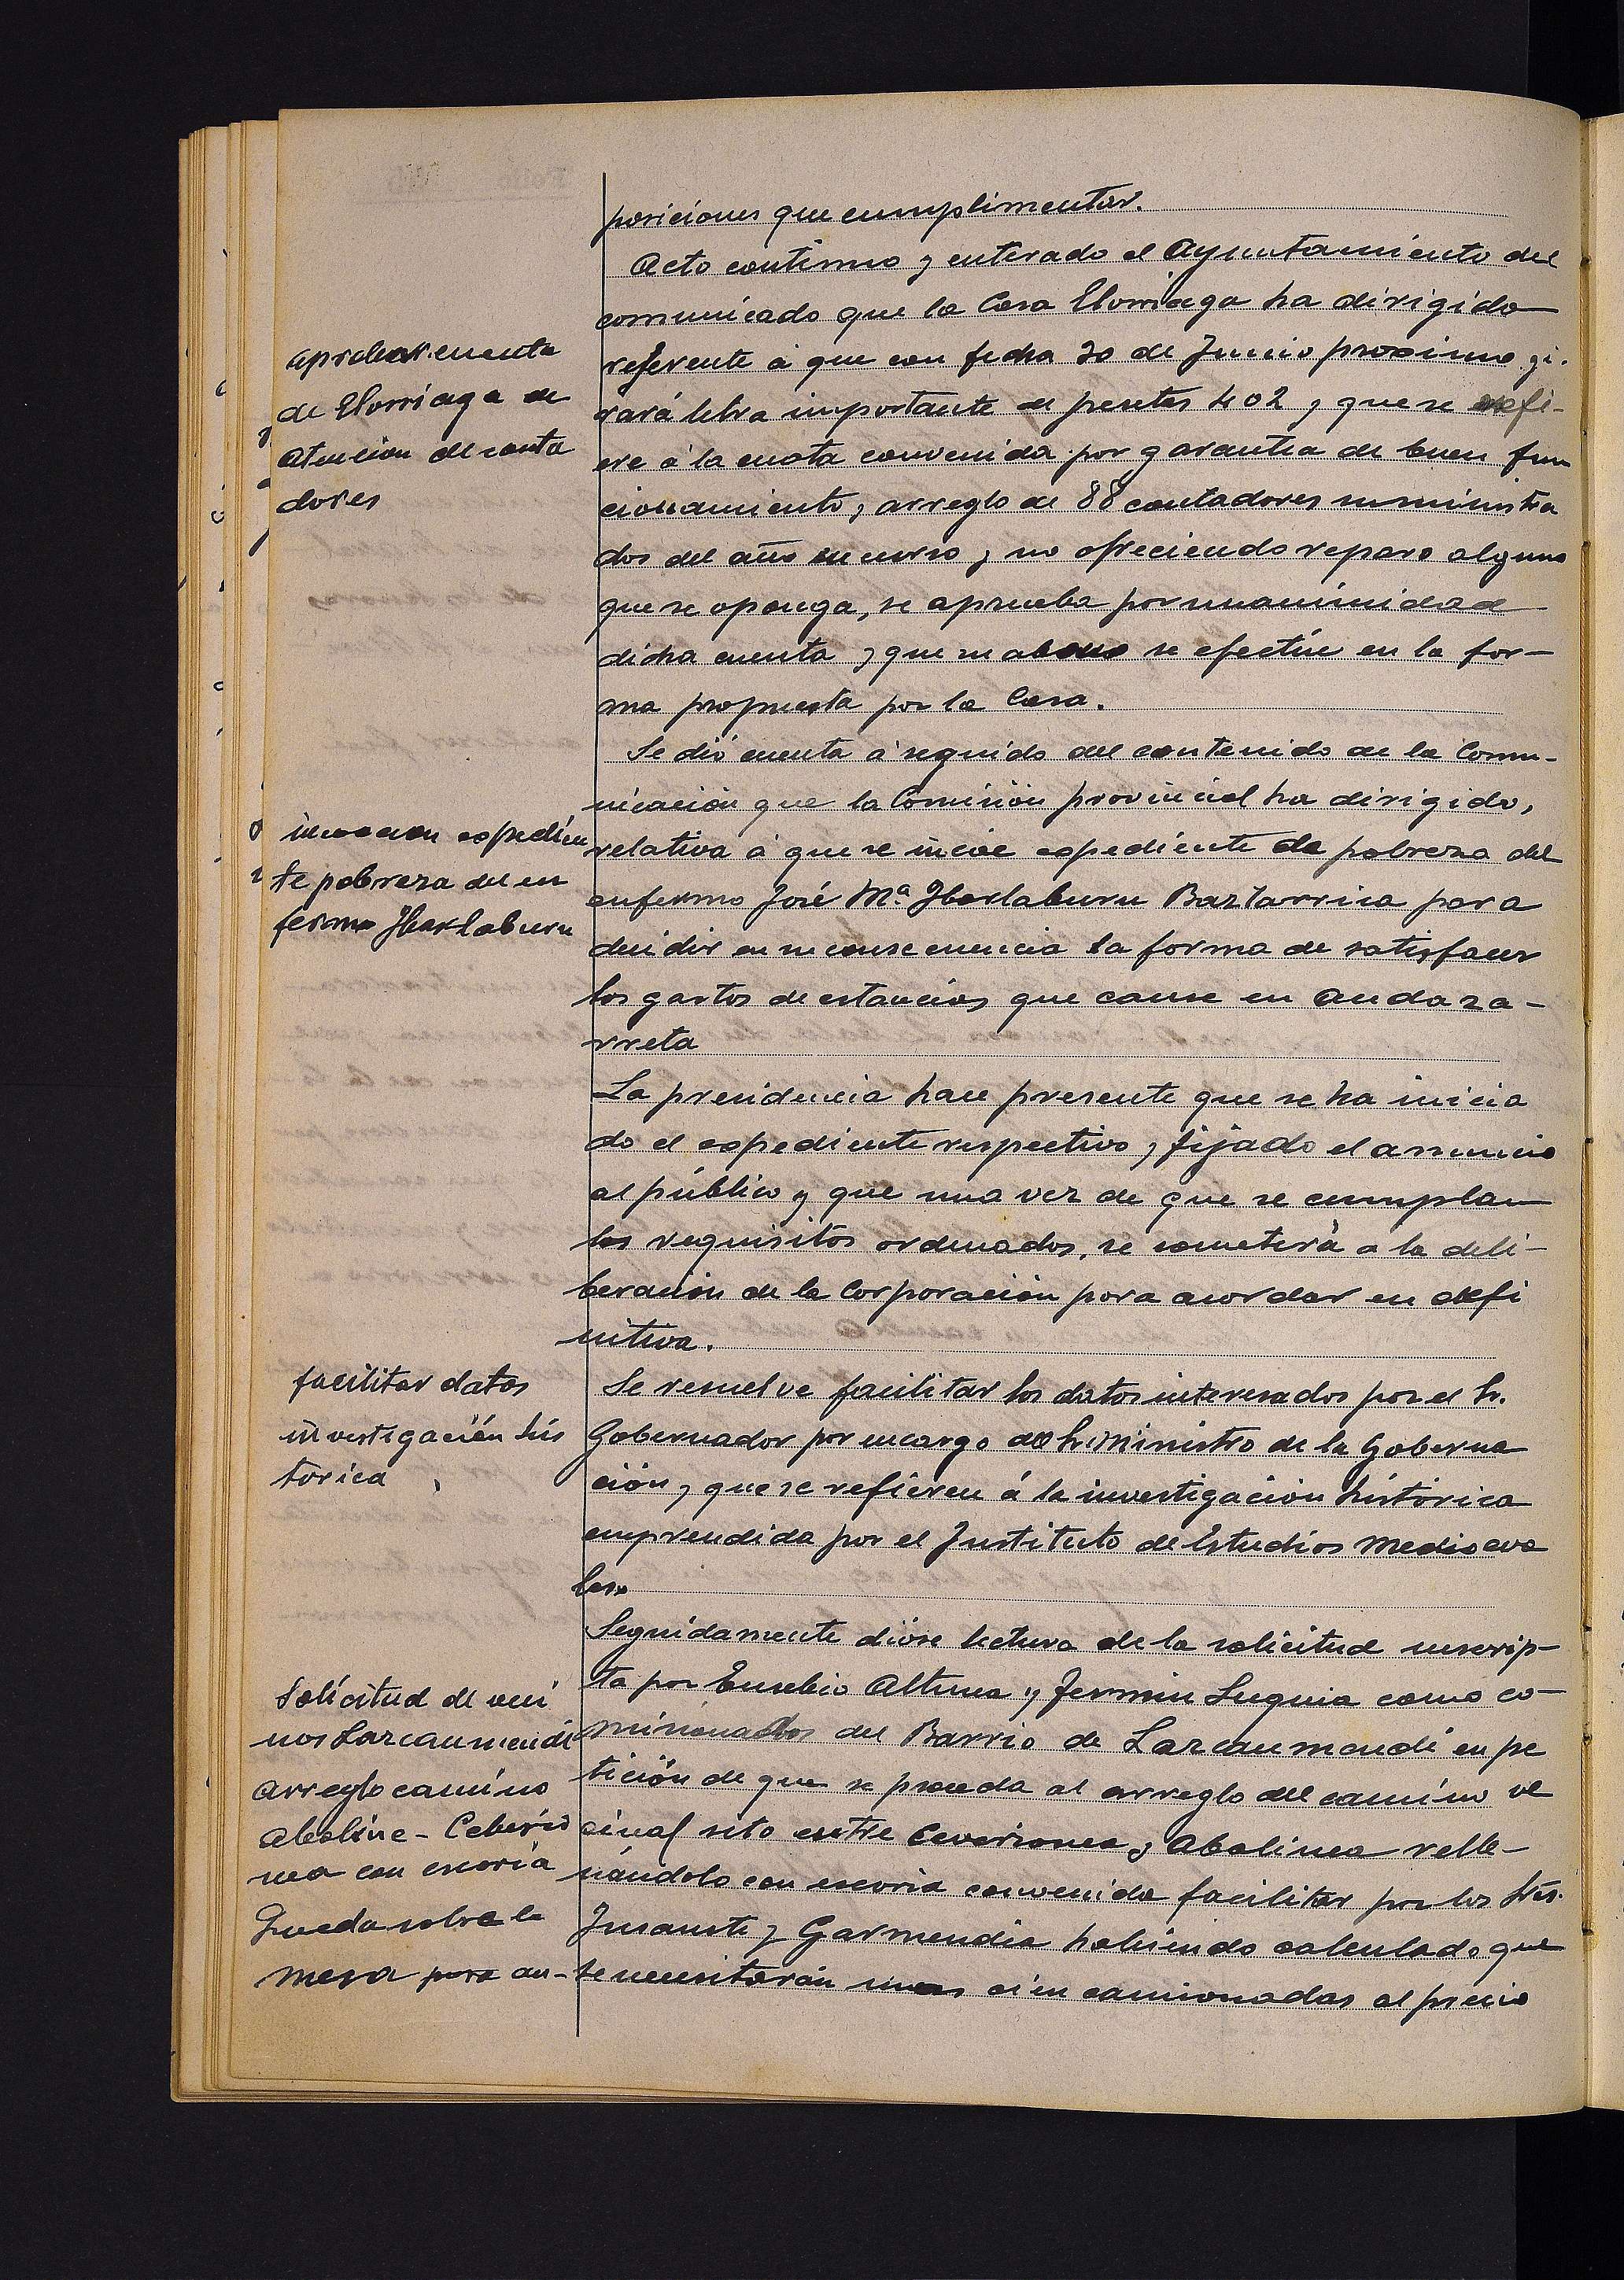 posiciones que cumplimentar.
Acto continuo y enterado el Ayuntamiento del
comunicado que la Casa Elorriaga ha dirigido
referente á que con fecha 30 de Junio proximo gi-
rará letra importante de pesetas 402 y que se refi-
ere á la cuota convenida por garantia de buen fun
cionamiento y arreglo de 88 contadores suministra
dos del año en curso y no ofreciendo reparo alguno
que se oponga, se aprueba por unanimidad
dicha cuenta y que su abono se efectúe en la for-
ma propuesta por la Casa.
Se dió cuenta á seguido del contenido de la Comu-
nicación que la Comisión provincial ha dirigido,
relativa á que se inicie expediente de pobreza del
enfermo José Mª Ibarlaburu Baztarrica para
decidir en su consecuencia la forma de satisfacer
los gastos de estancias que cause en Andaza-
rreta
La presidencia hace presente que se ha inicia
do el expediente respectivo y fijado el anuncio
al público y que una vez de que se cumplan
los requisitos ordenados, se someterá a la deli-
beración de la Corporación para acordar en defi
nitiva.
Se resuelve facilitar los datos interesados por el Sr.
Gobernador por encargo del Sr. Ministro de la Goberna
ción y que se refieren á la investigación histórica
emprendida por el Instituto de Estudios Medioeva
les.
Seguidamente dióse lectura de la solicitud suscrip-
ta por Eusebio Altuna y Fermin Suquia como co-
misionados del Barrio de Lazcaumendi en pe
tición de que se proceda al arreglo del camino ve
cinal sito entre Ceverionea y Abalinea relle-
nándolo con escoria convenida facilitar por los Srs.
Insausti y Garmendia habiendo calculado que
se necesitarán unas cien camionadas al precio
aprobar cuenta
de Elorriaga de
atencion de conta
dores
incoacion expedien
te pobreza del en
fermo Ibarlaburu
facilitar datos
investigación his
torica
Solicitud de veci
nos Lazcaumendi
arreglo camino
Abaline - Ceberio
nea con escoria
Queda sobre la
mesa para au-